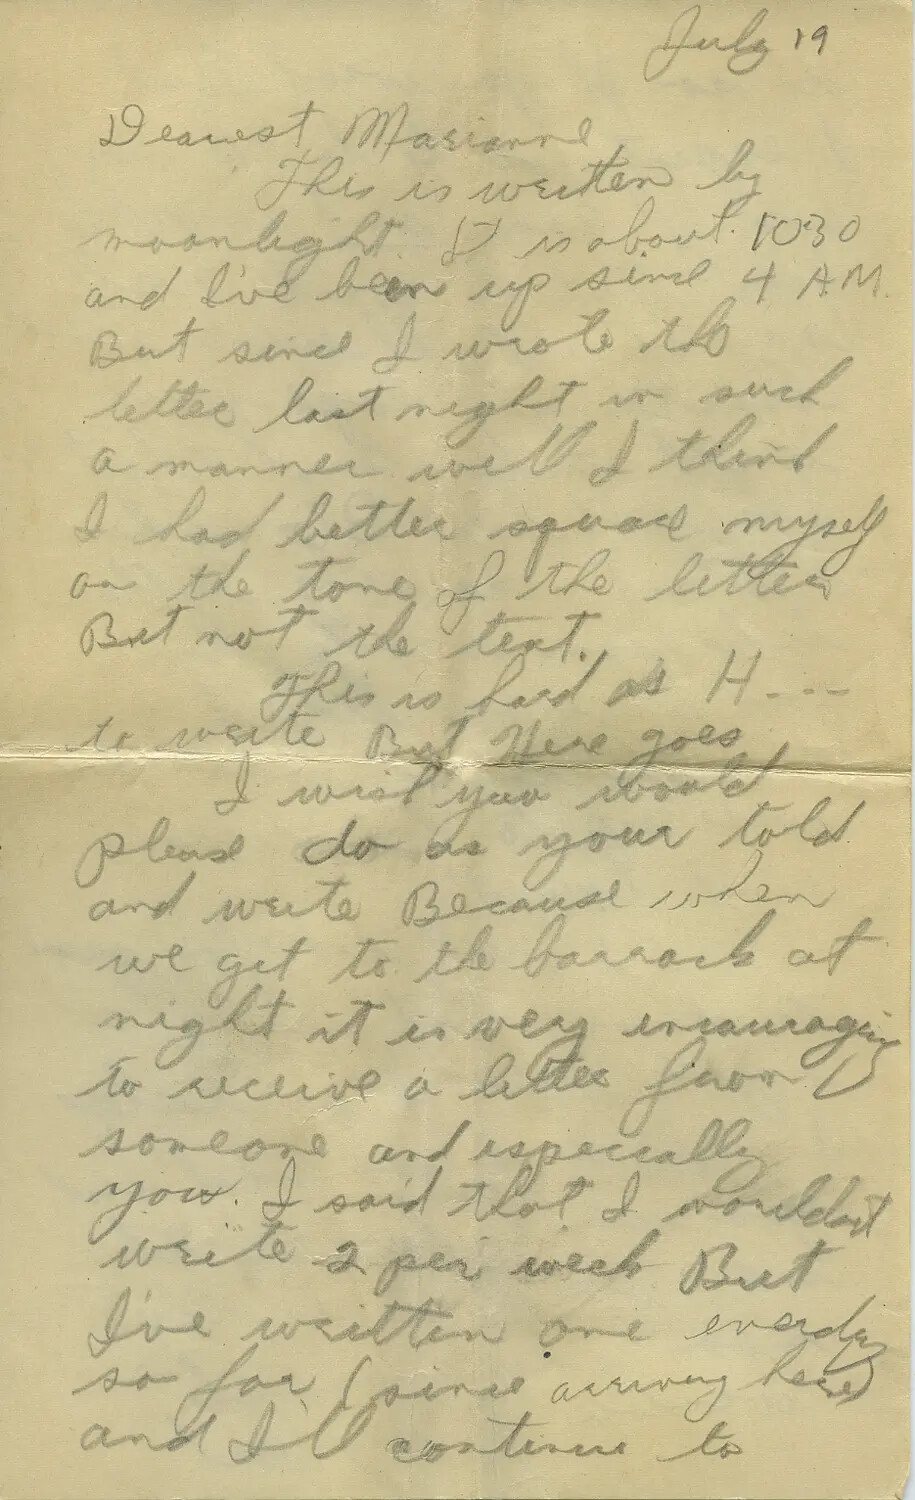 July 19
Dearest Marianne
This is written by
moonlight. It is about 1030
and I've been up since 4 A.M.
But since I wrote the
letter last night in such
a manner well I think
I had better square myself
on the tone of the letter
But not the text.
This is hard as H---
to write But Here goes
I wish you would
please do as your told
and write Because when
we get to the barrack at
night it is very encouraging
to receive a letter from
someone and especially
you. I said that I wouldn't
write 2 per week But
I've written one everday
so far (since arriving here)
and I'll continue to